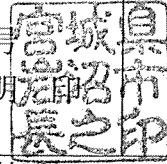 宮城県
岩沼市
長之印
印